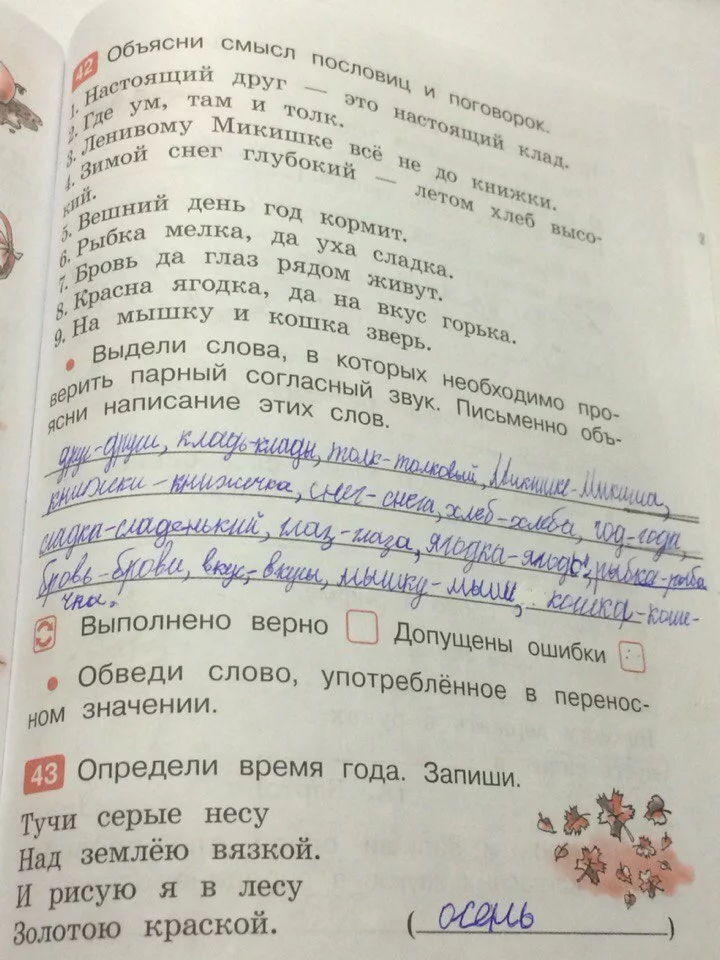 42 Объясни смысл пословиц и поговорок.
1. Настоящий друг — это настоящий клад.
2. Где ум, там и толк.
3. Ленивому Микишке всё не до книжки.
4. Зимой снег глубокий — летом хлеб высо-
кий.
5. Вешний день год кормит.
6. Рыбка мелка, да уха сладка.
7. Бровь да глаз рядом живут.
8. Красна ягодка, да на вкус горька.
9. На мышку и кошка зверь.
• Выдели слова, в которых необходимо про-
верить парный согласный звук. Письменно объ-
ясни написание этих слов.
друг-друзи, кладь-клады, толк-толковый, Микишке-Микиша,
книжки-книжечка, снег-снега, хлеб-хлеба, год-года,
сладка-сладенький, глаз-глаза, ягодка-ягоды, рыбка-рыба
бровь-брови, вкус-вкусы, мышку-мыши, кошка-коше-
чка.
Выполнено верно Допущены ошибки
• Обведи слово, употреблённое в перенос-
ном значении.
43 Определи время года. Запиши.
Тучи серые несу
Над землёю вязкой.
И рисую я в лесу
Золотою краской. (осень)